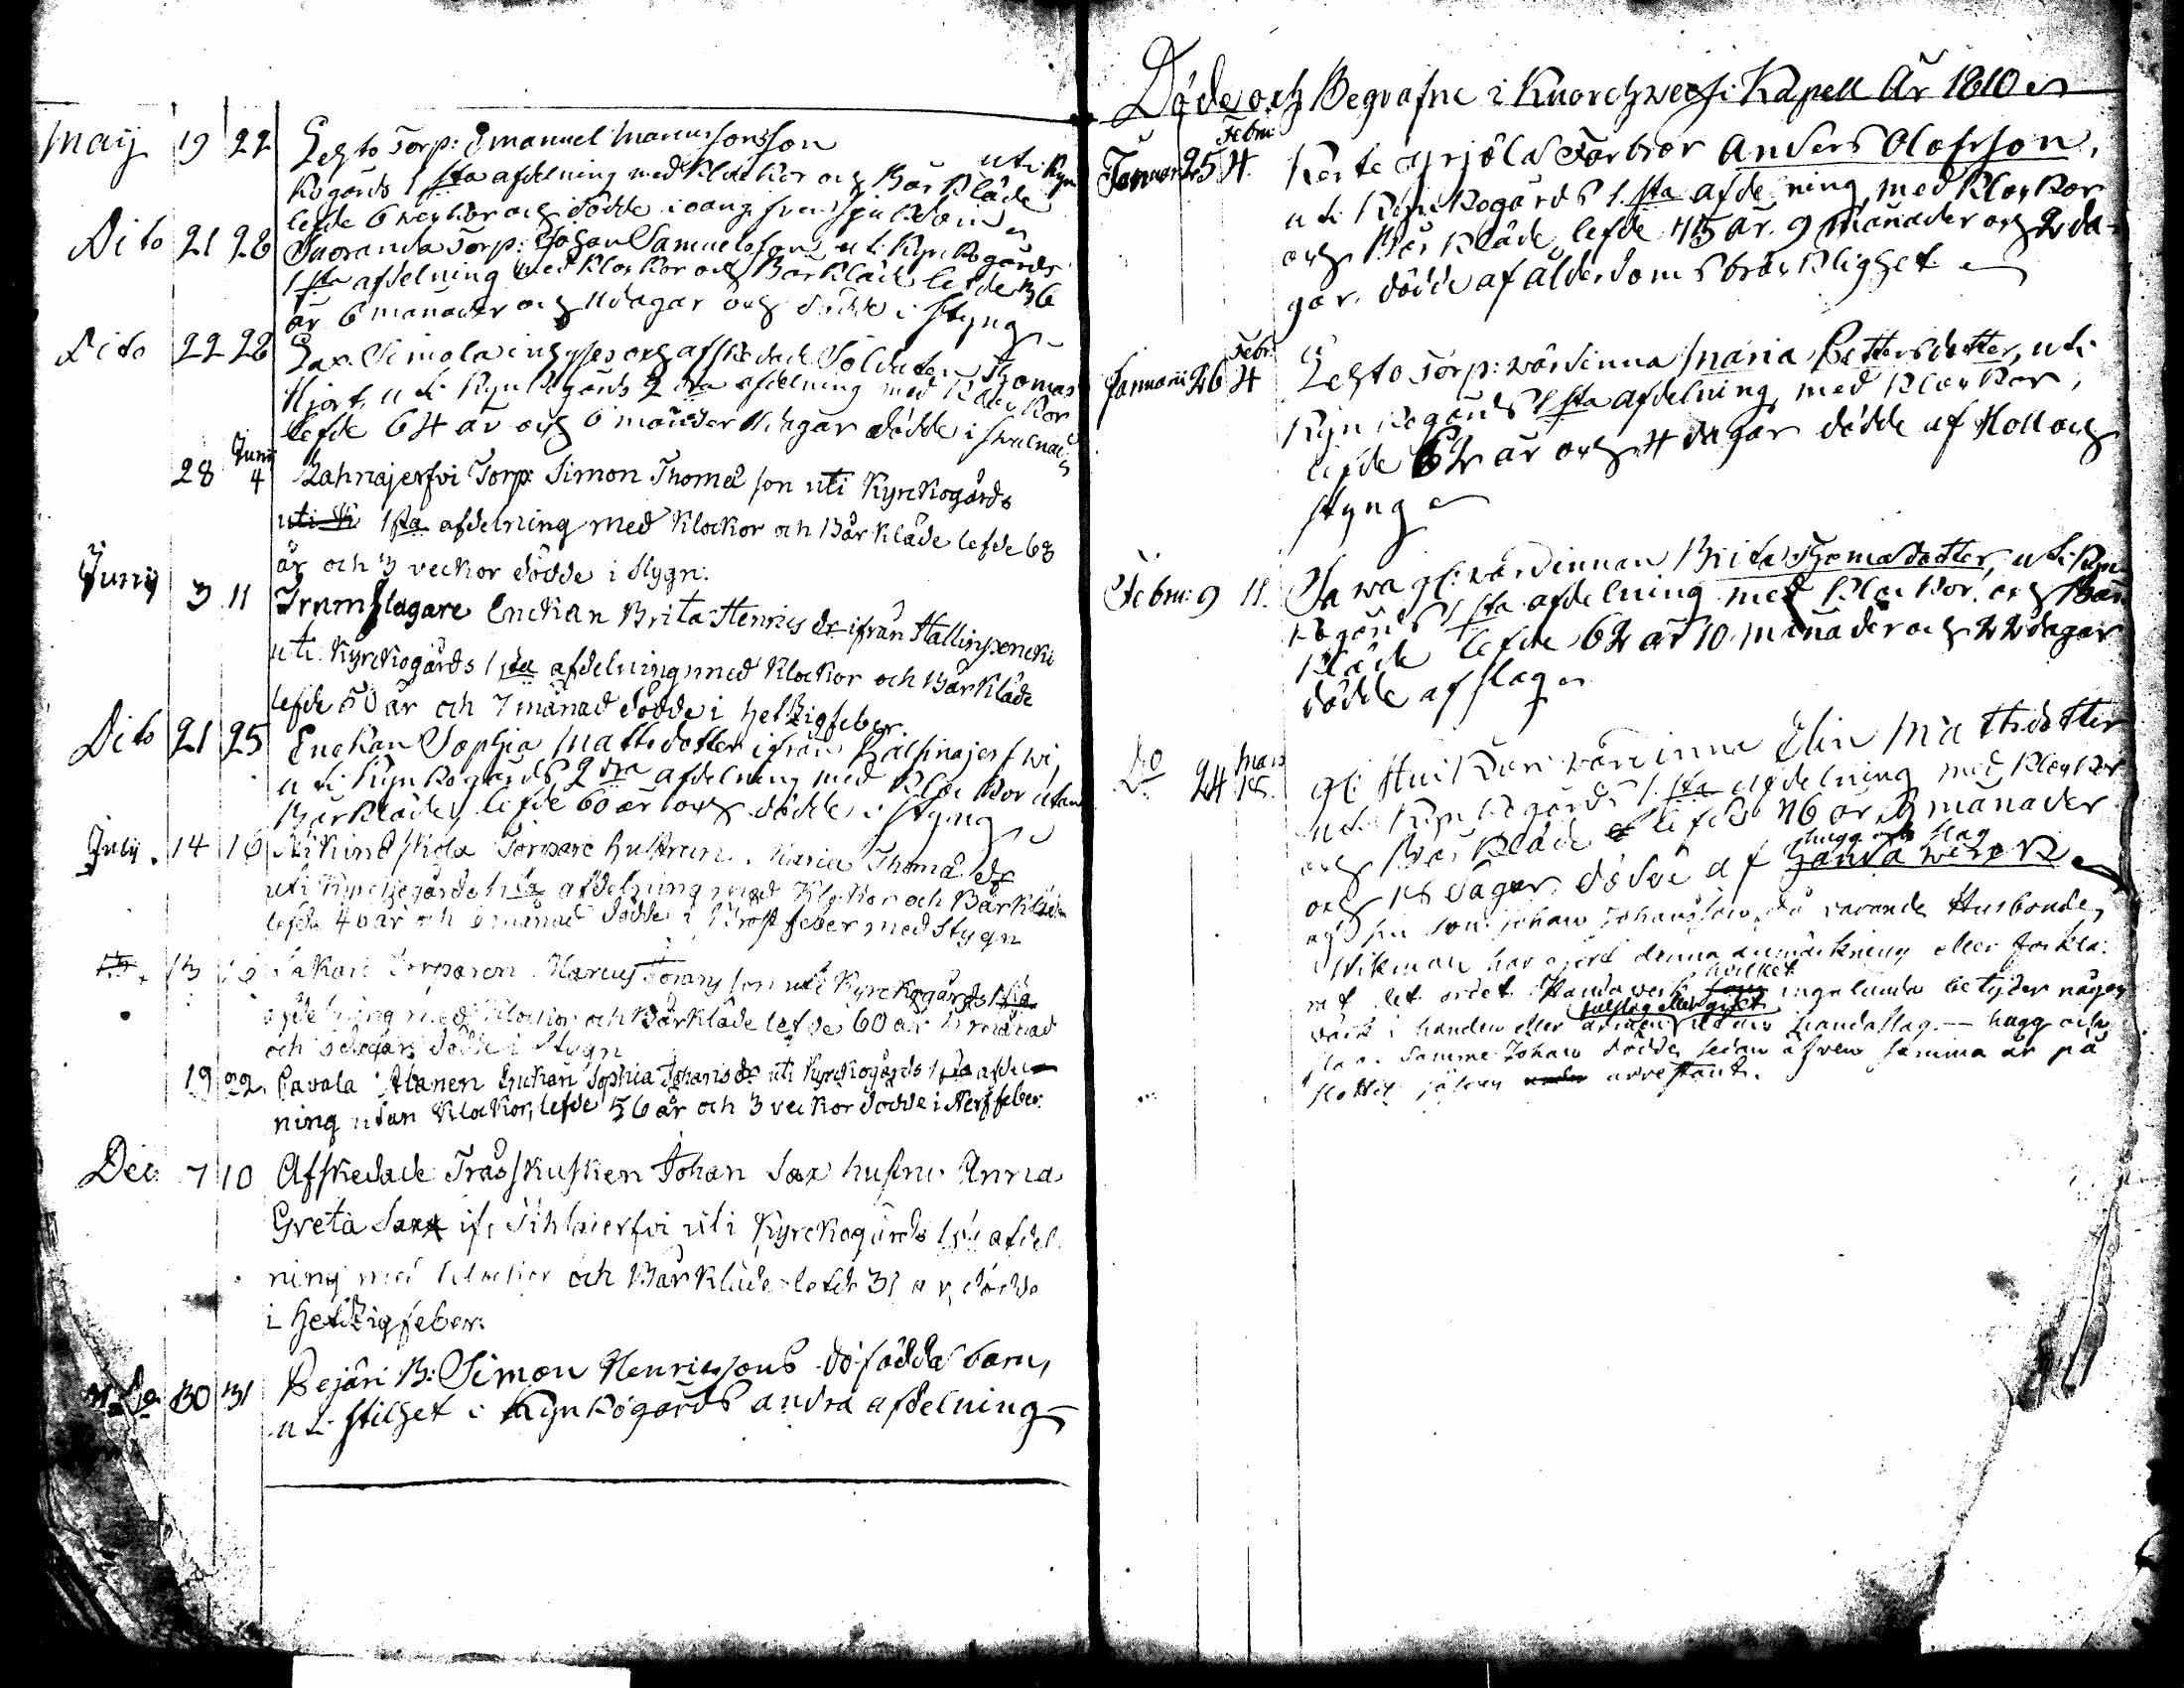 May 19 22 Lehto Torp: Emanuel Marcussons son uti Kyr
kogårds 1sta afdelning med klockor och Bårkläde
lefde 6 weckor och dödde i sjukdom
Dito 21 28 Torp: Johan Samuelsson uti Kyrkogårds
1sta afdelning med klockor och Bårkläde lefde 36
år 6 månader och 11 dagar och dödde i styng
Dito 22 28 Sax. Simola inhyses och afskedade Soldaten Thomas
Hjort, uti Kyrkogårds 2dra afdelning med klockor
lefde 64 år och 6 månader dagar dödde i
28 Junij 4 Lahnajerfvi Torp: Simon Thomæ son uti Kyrckogårds
uti K 1sta afdelning med Klockor och Bårkläde lefde 68
år och 3 veckor dödde i stygn.
Junij 3 11 Trumslagare Enckan Brita Henrics dr ifrån
uti Kyrckogårds 1sta afdelning med Klockor och Bårkläde
lefde 50 år och 7 månad dödde i hetzigfeber.
Dito 21 25 Enckan Sophia Mattsdotter ifrån
uti Kyrkogårds 2dra afdelning med klockor utan
Bårkläde, lefde 60 år och dödde i styng
July. 14 16 Torpare hustrun Maria Thomæ dr
uti Kyrckogårds 1sta afdelning med Klockor och Bårkläde
lefde 40 år och månad dödde i Bröstfeber med Stygn
13 Torparen Marcus son uti Kyrckogårds 1sta
afdelning med Klockor och Bårkläde lefde 60 år månad
och dagar dödde i Stygn
19 22. Pavola Alanen Enckan Sophia Johans dr uti Kyrckogårds 1sta afdel
ning utan Klockor, lefde 56 år och 3 veckor dödde i Nerffeber.
Dec 7 10 Afskedade Johan Sax hustru Anna
Greta Sax if. uti Kyrckogårds 1sta afdel
ning med klockor och Bårkläde lefde 31 år, dödde
i hetzigfeber.
30 31 Pejari B: Simon Henricssons dödfödda barn,
uti stilhet i Kyrkogårds andra afdelning
Döde och Begrafne i Kapell År 1810
Januarii 25 Febru: 4. Yrjölä Farbror Anders Olofsson,
uti Kyrkogårds 1sta afdelning, med klockor
och Bårkläde, lefde 75 år. 9 månader och 2 da-
gar. dödde af ålderdoms bräcklighet.
Januarii 26 Febr: 4 Lehto Torp: värdinna Maria Pettersdotter, uti
Kyrkogårds 1sta afdelning, med klockor,
lefde 62 år och 4 dagar dödde af Håll och
styng
Febru: 9 11. värdinnan Brita Thomasdotter, uti Kyr
kogårds 1sta afdelning med klockor, och Bår
kläde lefde 62 år 10. månader och 22 dagar
dödde af slag
Do 24 Mars 18. gl: värdinna Elin Mattsdotter
uti Kyrkogårds 1.sta afdelning med klockor
och Bårkläde lefde 46 år, 3 månader
hugg och slag
och 18 dagar. dödde af handawerk
af sin son Johan Johansson, då varande Husbonde,
Wikman har gjort denna anmärkning eller förkla:
hvilket
rat det ordet Handawerk som ingalunda betyder någon
värk i handen eller armen utan handaslag. — hugg och
slag. Samme Johan dödde sedan äfven samma år på
slottet såsom under arrestant.